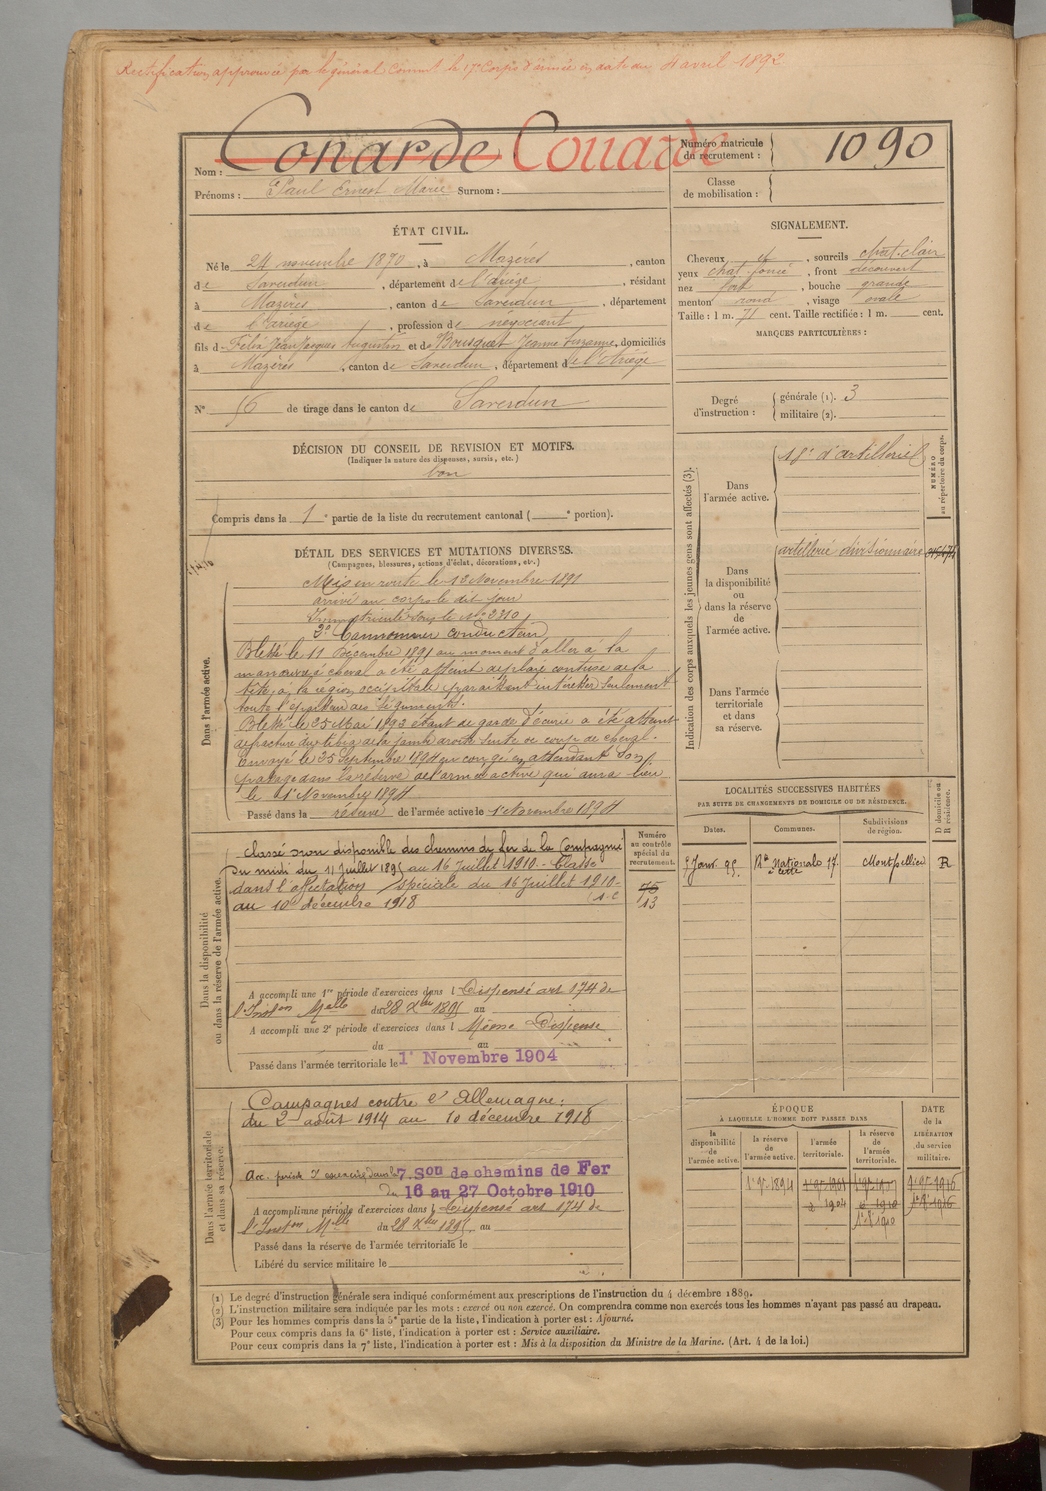 Rectification approuvée par le général Commt le 17e Corps d'armée en date du 4 avril 1892
Nom : Conarde Couarde
Numéro matricule du recrutement : 1090
Prénoms : Paul Ernest Marie Surnom :
Classe de mobilisation :
ÉTAT CIVIL.
Né le 24 novembre 1870, à Mazères, canton
de Saverdun, département de l'Ariège, résidant
à Mazères, canton de Saverdun, département
de l'Ariège, profession de négociant
fils d Félix Jean Jacques Augustin et de Bousquet Jeanne Suzanne, domiciliés
à Mazères, canton de Saverdun, département de l'Ariège
N° 56 de tirage dans le canton de Saverdun
SIGNALEMENT.
Cheveux et, sourcils chat. clair
yeux chat. foncé, front découvert
nez fort, bouche grande
menton rond, visage ovale
Taille : 1 m. 71 cent. Taille rectifiée : 1 m. cent.
MARQUES PARTICULIÈRES :
Degré d'instruction : générale (1). 3
militaire (2).
DÉCISION DU CONSEIL DE REVISION ET MOTIFS.
(Indiquer la nature des dispenses, sursis, etc.)
bon
Compris dans la 1e partie de la liste du recrutement cantonal ( e portion).
DÉTAIL DES SERVICES ET MUTATIONS DIVERSES.
(Campagnes, blessures, actions d'éclat, décorations, etc.)
Dans l'armée active.
Mis en route le 12 Novembre 1891
arrivé au corps le dit jour
Immatriculé sous le No 2310
2e Cannonier conducteur
Blessé le 11 Décembre 1891 au moment d'aller à la
manœuvre à cheval a été atteint de plaie contuse de la
tête, à la région occipitale paraissant intéresser seulement
toute l'épaisseur des téguments.
Blessé le 25 Mai 1893 étant de garde d'écurie a été atteint
de fracture du tibia de la jambe droite suite de coup de cheval.
Envoyé le 25 Septembre 1894 en congé en attendant son
passage dans la réserve de l'armée active qui aura lieu
le 1r Novembre 1894
Passé dans la réserve de l'armée active le 1r Novembre 1894
Indication des corps auxquels les jeunes gens sont affectés (3).
NUMÉRO au répertoire du corps.
Dans l'armée active.
18e d'artillerie
Dans la disponibilité ou dans la réserve de l'armée active.
artillerie divisionnaire
Dans l'armée territoriale et dans sa réserve.
Dans la disponibilité ou dans la réserve de l'armée active.
Classé non disponible des chemins de fer de la Compagnie
du midi du 11 juillet 1895 au 16 Juillet 1910 - Classé
dans l'affectation spéciale du 16 Juillet 1910
au 10 décembre 1918
Numéro au contrôle spécial du recrutement.
13
A accompli une 1re période d'exercices dans l Dispensé art 174 de
l'Inston Melle du 28 Xbre 1895 au
A accompli une 2e période d'exercices dans l Même Dispense
du au
Passé dans l'armée territoriale le 1r Novembre 1904
LOCALITÉS SUCCESSIVES HABITÉES
PAR SUITE DE CHANGEMENTS DE DOMICILE OU DE RÉSIDENCE.
Dates. Communes. Subdivisions de région. D domicile ou R résidence.
5 Janv. 95. Rte Nationale 17. à Cette Montpellier R
Dans l'armée territoriale et dans sa réserve.
Campagnes contre l'Allemagne :
du 2 août 1914 au 10 décembre 1918
Acc. période d'exercice dans la 7. Son de chemins de Fer
du 16 au 27 Octobre 1910
A accompli une période d'exercices dans l Dispensé art 174 de
l'Inston Melle du 28 Xbre 1895 au
Passé dans la réserve de l'armée territoriale le
Libéré du service militaire le
ÉPOQUE
À LAQUELLE L'HOMME DOIT PASSER DANS
la disponibilité de l'armée active. la réserve de l'armée active. l'armée territoriale. la réserve de l'armée territoriale.
DATE de la LIBÉRATION du service militaire.
(1) Le degré d'instruction générale sera indiqué conformément aux prescriptions de l'instruction du 4 décembre 1889.
(2) L'instruction militaire sera indiquée par les mots : exercé ou non exercé. On comprendra comme non exercés tous les hommes n'ayant pas passé au drapeau.
(3) Pour les hommes compris dans la 5e partie de la liste, l'indication à porter est : Ajourné.
Pour ceux compris dans la 6e liste, l'indication à porter est : Service auxiliaire.
Pour ceux compris dans la 7e liste, l'indication à porter est : Mis à la disposition du Ministre de la Marine. (Art. 4 de la loi.)